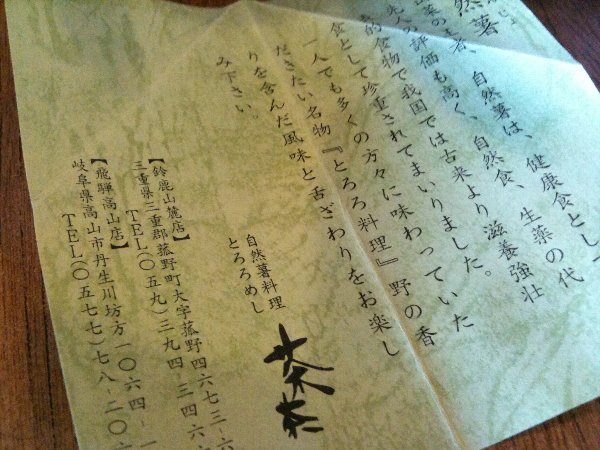 然薯
菜の王者、自然薯は、健康食とし
先人の評価も高く、自然食、生薬の代
的食物で我国では古来より滋養強壮
食として珍重されてまいりました。
一人でも多くの方々に味わっていた
だきたい名物『とろろ料理』野の香
りを含んだ風味と舌ざわりをお楽し
み下さい。
自然薯料理
とろろめし
茶茶
【鈴鹿山麓店】
三重県三重郡菰野町大字菰野四六七三-六
TEL(〇五九)三九四-三四六
【飛騨高山店】
岐阜県高山市丹生川坊方一〇六四-一
TEL(〇五七七)七八-二〇